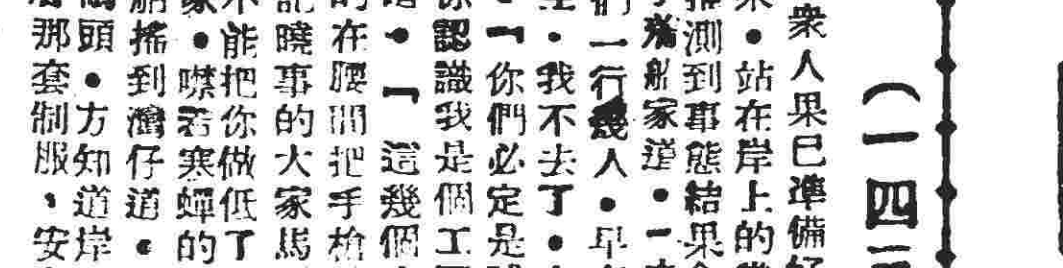 （一四
衆人果已準備好
・站在岸上的
推測到事態結果
船家道・一
們一行幾人・早
・我不去了・
「你們必定是
你認識我是個工
・「這幾個
的在腰間把手槍
記曉事的大家馬
不能把你做低了
家・噤若寒蟬的
船搖到灣仔道・
頭・方知道岸
那套制服、安